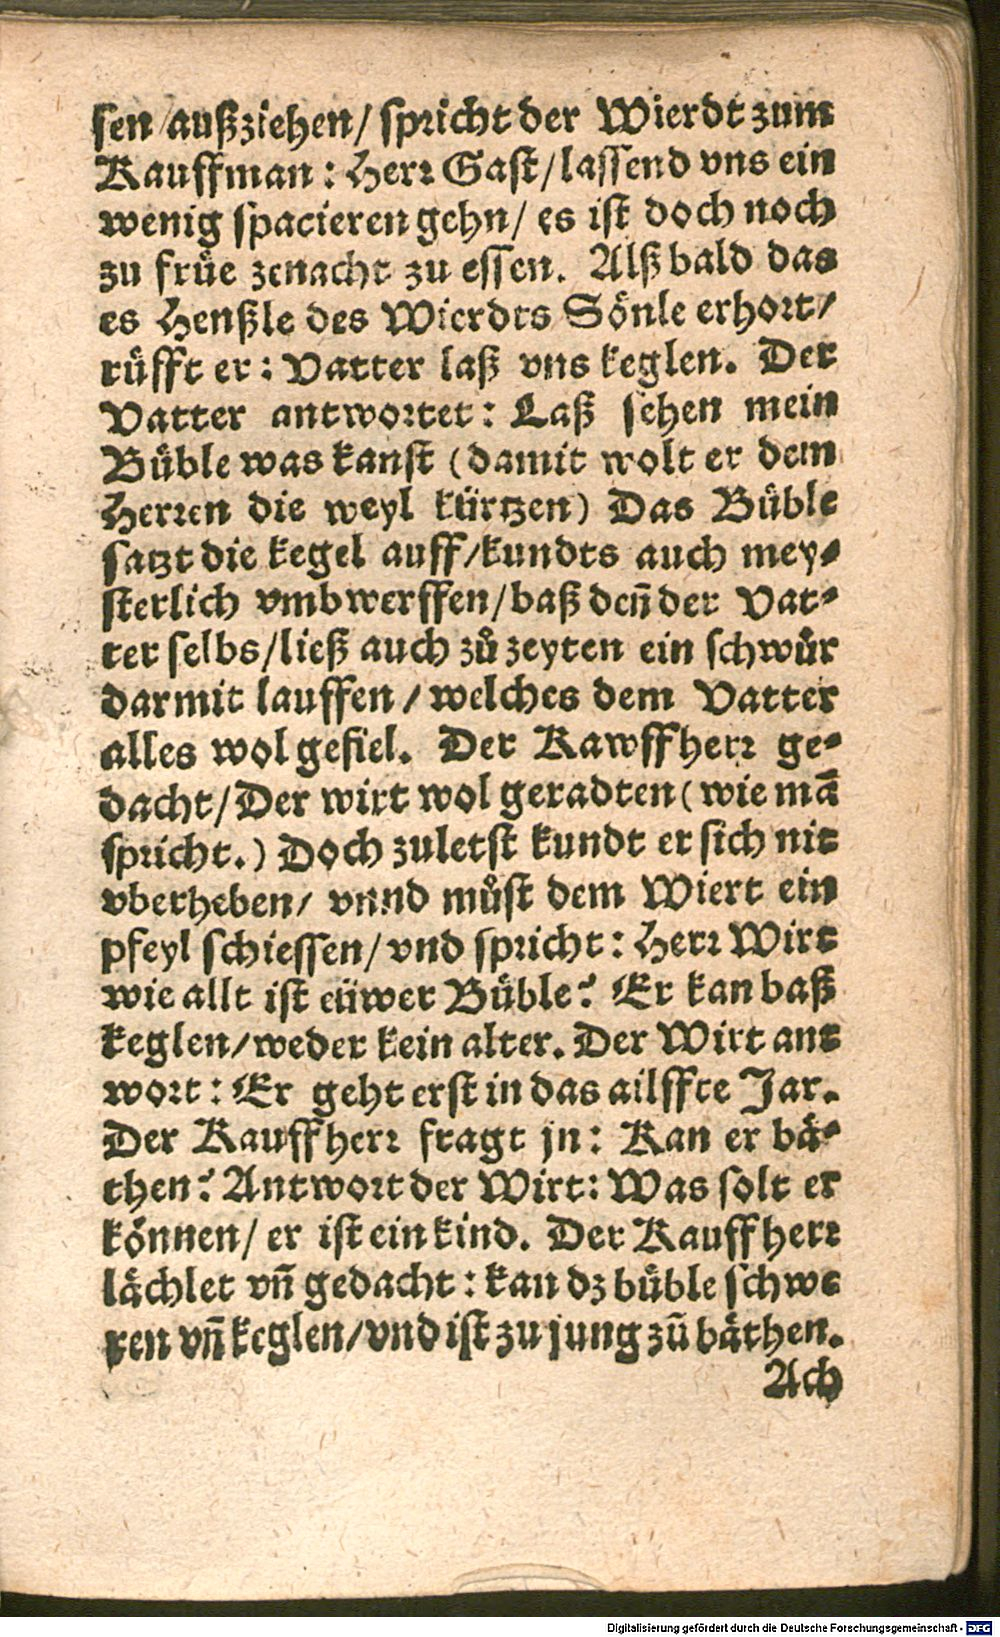 sen/außziehen/ spricht der Wierdt zum
Kauffman: Herr Gast/lassend vns ein
wenig spacieren gehn/ es ist doch noch
zu früe zenacht zu essen. Alßbald das
es Henßle des Wierdts Sönle erhort/
rüfft er: Vatter laß vns keglen. Der
Vatter antwortet: Laß sehen mein
Büble was kanst (damit wolt er dem
Herren die weyl kürtzen) Das Büble
satzt die kegel auff/kundts auch mey-
sterlich vmbwerffen/baß deñ der Vat-
ter selbs/ließ auch zů zeyten ein schwůr
darmit lauffen/welches dem Vatter
alles wol gefiel. Der Kawffherr ge-
dacht/Der wirt wol geradten (wie mā
spricht.) Doch zuletst kundt er sich nit
vberheben/ vnnd můst dem Wiert ein
pfeyl schiessen/vnd spricht: Herr Wirt
wie allt ist eüwer Büble? Er kan baß
keglen/weder kein alter. Der Wirt ant
wort: Er geht erst in das ailffte Jar.
Der Kauffherr fragt jn: Kan er bä-
then? Antwort der Wirt: Was solt er
können/ er ist ein kind. Der Kauffherr
lächlet vñ gedacht: kan dz büble schwe
ren vñ keglen/vnd ist zu jung zů bäthen.
Ach
Digitalisierung gefördert durch die Deutsche Forschungsgemeinschaft - DFG